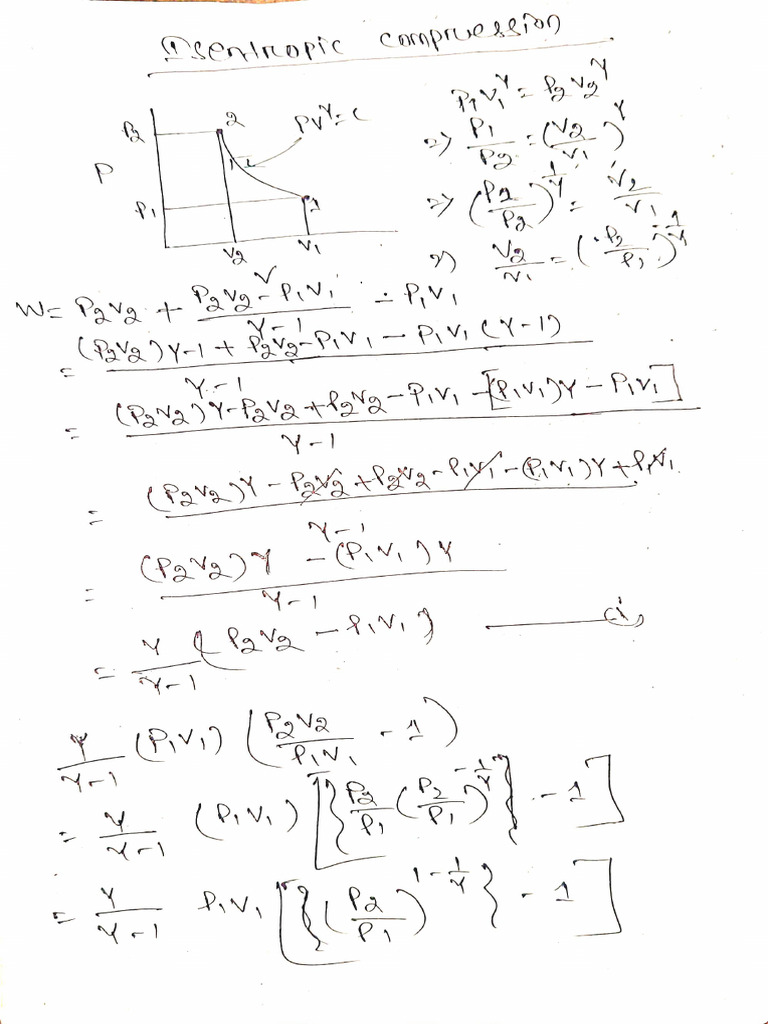 Isentropic compression
P₁V₁^γ = P₂V₂^γ
P₂ 2 PV^γ = C
P
P₁ 1
V₂ V₁
=> P₁/P₂ = (V₂/V₁)^γ
=> (P₁/P₂)^(1/γ) = V₂/V₁
=> V₂/V₁ = (P₂/P₁)^(-1/γ)
W = P₂V₂ + (P₂V₂ - P₁V₁)/(γ-1) - P₁V₁
= ((P₂V₂)γ-1 + P₂V₂ - P₁V₁ - P₁V₁(γ-1))/(γ-1)
= ((P₂V₂)γ - P₂V₂ + P₂V₂ - P₁V₁ - [(P₁V₁)γ - P₁V₁])/(γ-1)
= ((P₂V₂)γ - P₂V₂ + P₂V₂ - P₁V₁ - (P₁V₁)γ + P₁V₁)/(γ-1)
= ((P₂V₂)γ - (P₁V₁)γ)/(γ-1)
= γ/(γ-1) (P₂V₂ - P₁V₁) —— (i)
γ/(γ-1) (P₁V₁) (P₂V₂/P₁V₁ - 1)
= γ/(γ-1) (P₁V₁) [{P₂/P₁ (P₂/P₁)^(-1/γ)} - 1]
= γ/(γ-1) P₁V₁ [{(P₂/P₁)^(1-1/γ)} - 1]